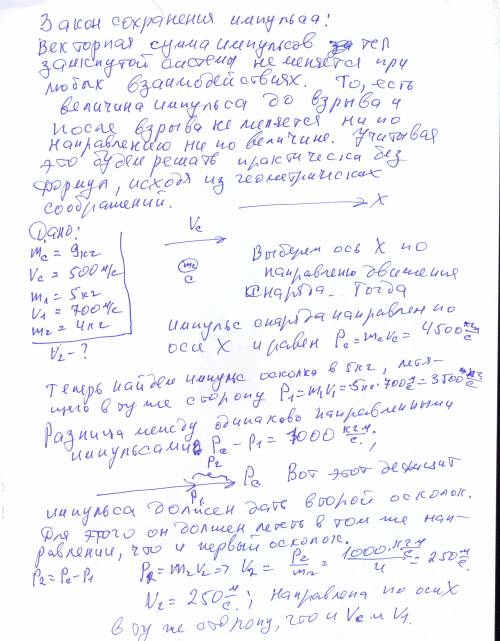 Закон сохранения импульса:
Векторная сумма импульсов тел
замкнутой системы не меняется при
любых взаимодействиях. То, есть
величина импульса до взрыва и
после взрыва не меняется ни по
направлению ни по величине. Учитывая
это будем решать практически без
формул, исходя из геометрических
соображений.
X
Дано:
mc = 9кг
Vc = 500м/с
m1 = 5кг
V1 = 700м/с
m2 = 4кг
V2 - ?
Vc
mc
C
Выберем ось X по
направлению движения
снаряда. Тогда
импульс снаряда направлен по
оси X и равен Pc = mcVc = 4500 кгм/с
Теперь найдем импульс осколка в 5кг, летя-
щего в ту же сторону P1 = m1V1 = 5кг·700м/с = 3500 кгм/с
Разница между одинаково направленными
импульсами Pc - P1 = 1000 кгм/с;
P2
P1
Pc
Вот этот дефицит
импульса должен дать второй осколок.
Для этого он должен лететь в том же нап-
равлении, что и первый осколок.
P2 = Pc - P1
P2 = m2V2 => V2 = P2/m2 = 1000 кгм/с / 4 = 250 м/с
V2 = 250 м/с; направлена по оси X
в ту же сторону, что и Vc и V1.